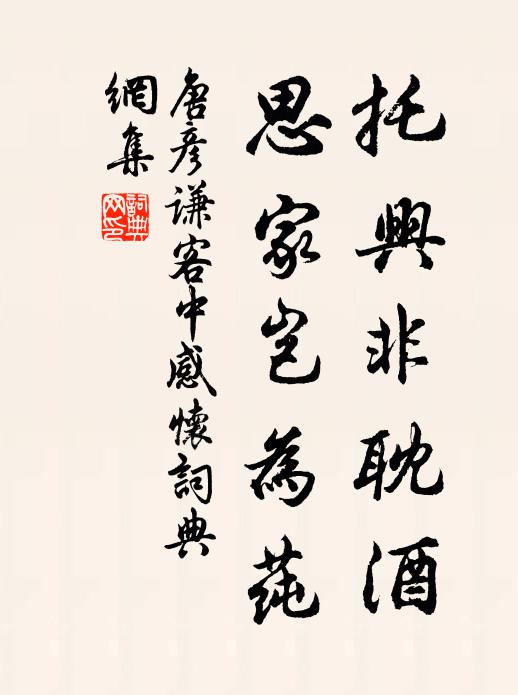 托興非耽酒
思家豈為蒓
唐彥謙客中感懷詞典
網集
詞典網印